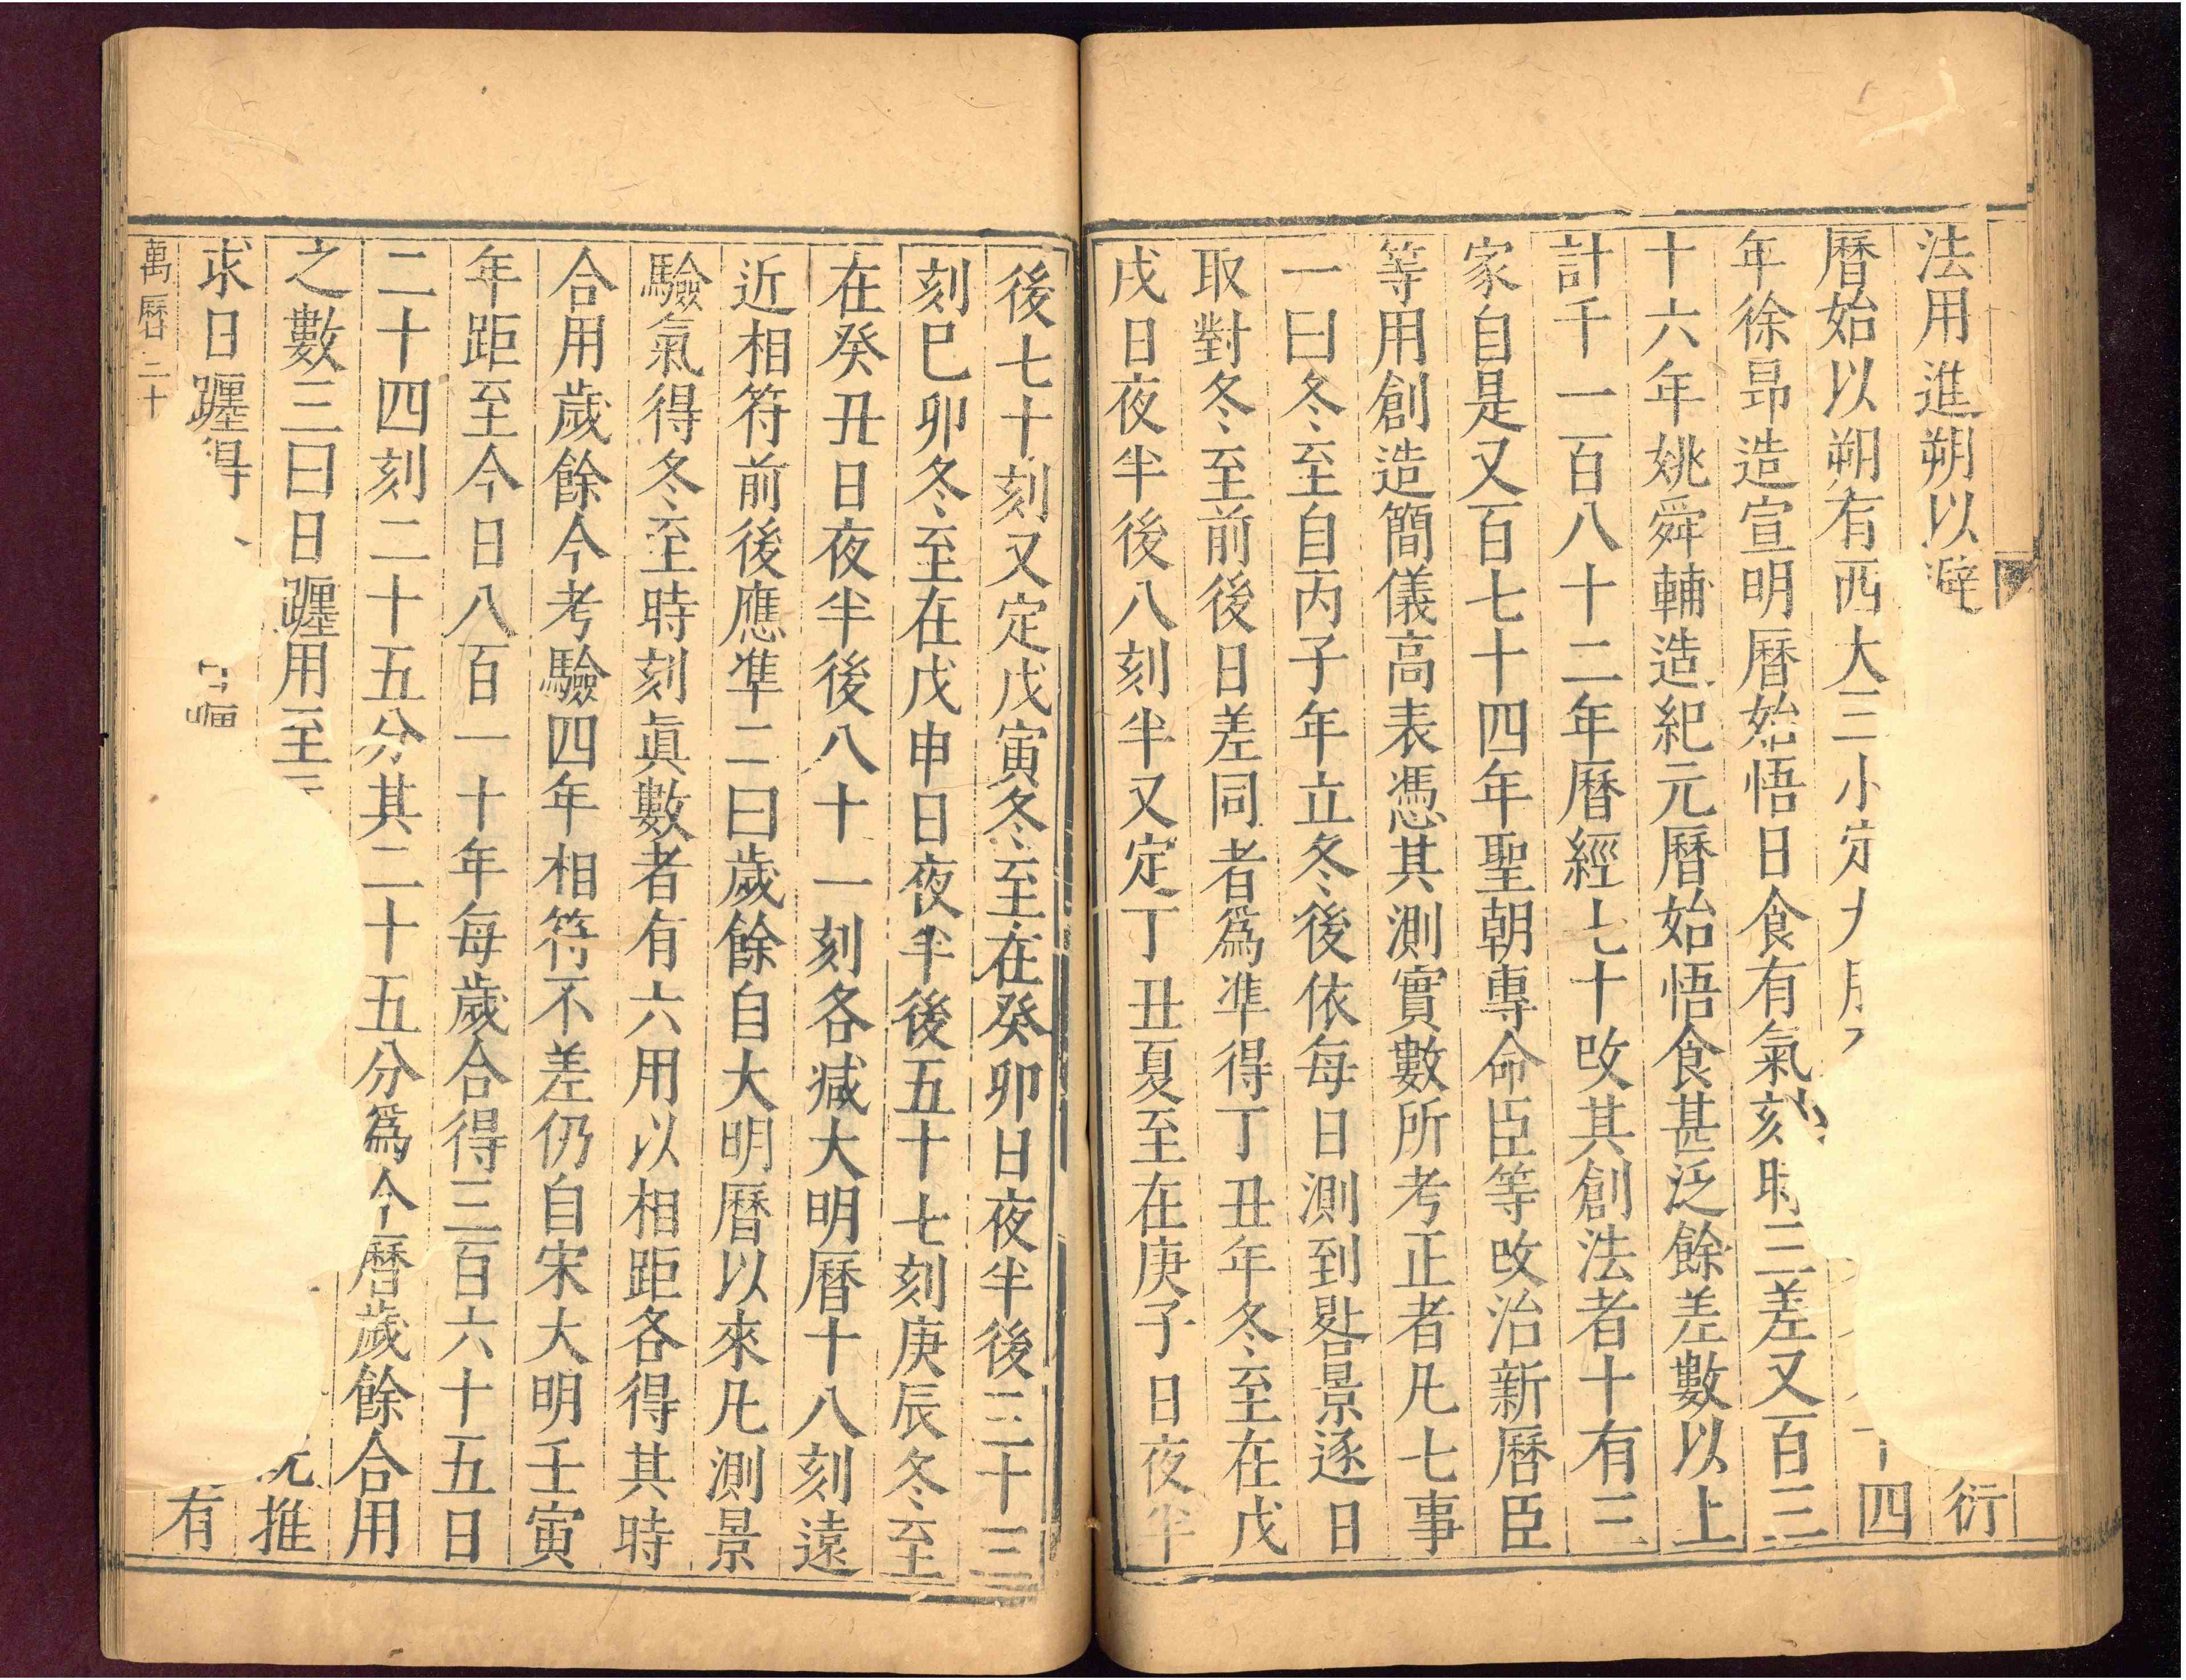 法用進朔以避衍
曆始以朔有四大三小定九四
年徐昻造宣明曆始悟日食有氣刻時三差又百三
十六年姚舜輔造紀元曆始悟食甚泛餘差數以上
計千一百八十二年曆經七十改其創法者十有三
家自是又百七十四年聖朝專命臣等改治新曆臣
等用創造簡儀高表憑其測實數所考正者凡七事
一曰冬至自丙子年立冬後依每日測到晷景逐日
取對冬至前後日差同者爲凖得丁丑年冬至在戊
戌日夜半後八刻半又定丁丑夏至在庚子日夜半
後七十刻又定戊寅冬至在癸卯日夜半後三十三
刻巳卯冬至在戊申日夜半後五十七刻庚辰冬至
在癸丑日夜半後八十一刻各减大明曆十八刻遠
近相符前後應凖二曰歲餘自大明曆以來凡測景
驗氣得冬至時刻眞數者有六用以相距各得其時
合用歲餘今考驗四年相符不差仍自宋大明壬寅
年距至今日八百一十年每歲合得三百六十五日
二十四刻二十五分其二十五分爲今曆歲餘合用
之數三曰日躔用至推
求日躔得有
萬曆二十